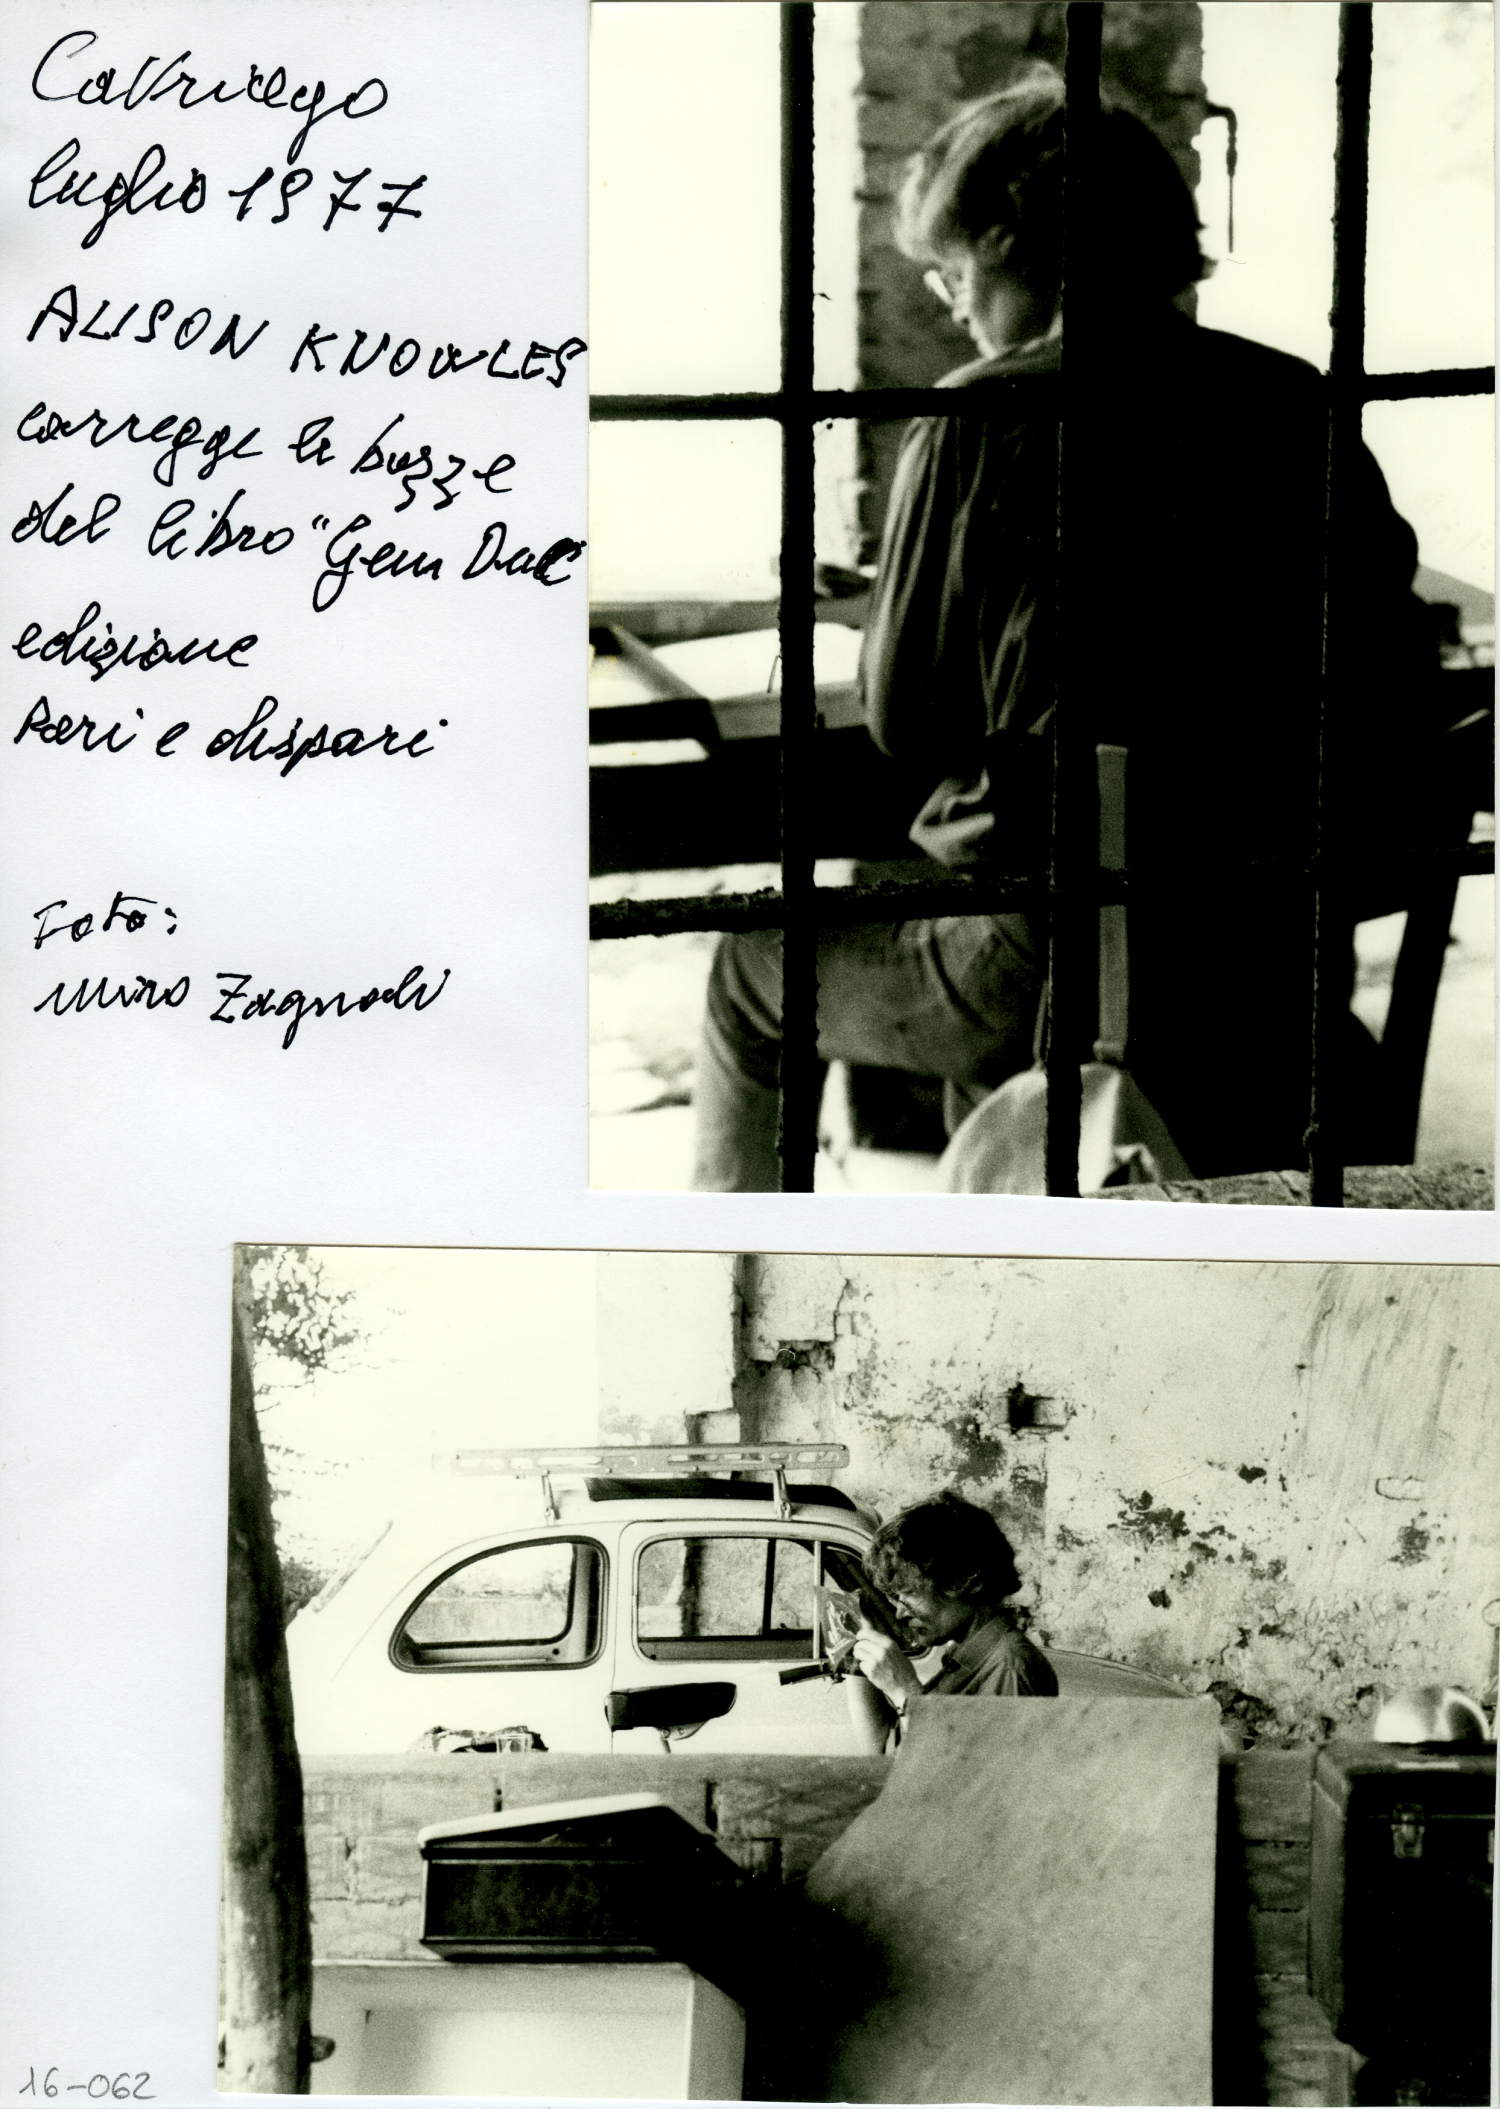 Cavriago
luglio 1977
ALISON KNOWLES
corregge le bozze
del libro "Gem Duc
edizione
Pari e dispari
Foto:
Miro Zagnoli
16-062